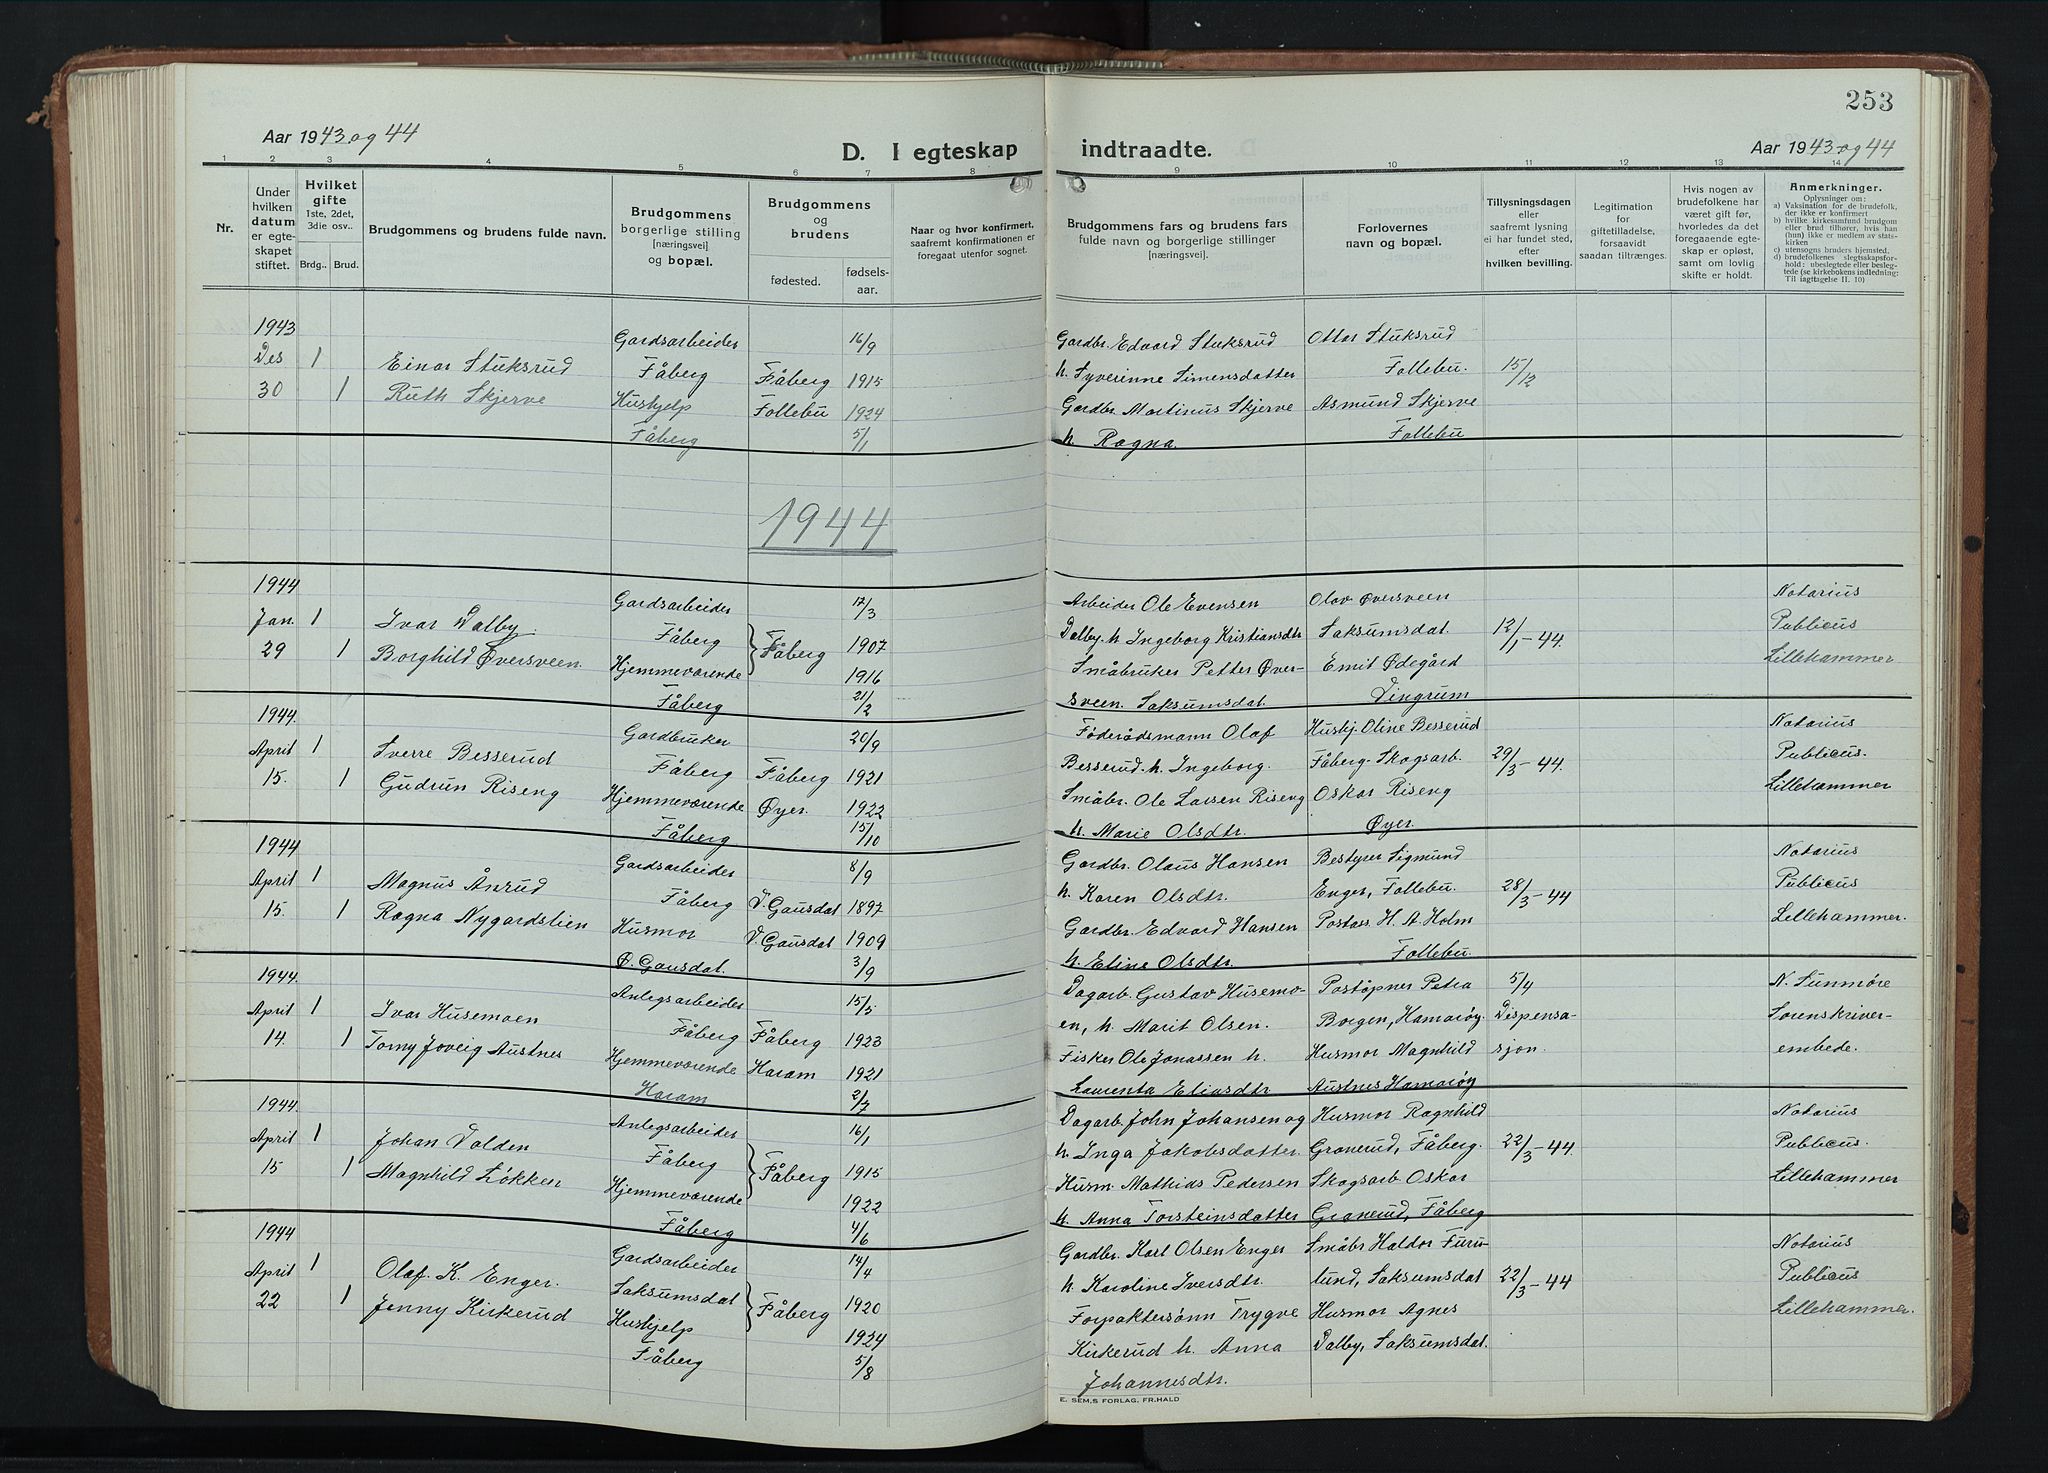 253
Aar 1943 og 44
D. I egteskap indtraadte.
Aar 1943 og 44
1 2 3 4 5 6 7 8 9 10 11 12 13 14
Nr.
Under hvilken datum er egteskapet stiftet.
Hvilket gifte
1ste, 2det, 3die osv..
Brdg.. Brud.
Brudgommens og brudens fulde navn.
Brudgommens borgerlige stilling [næringsvei] og bopæl.
Brudgommens og brudens
fødested. fødselsaar.
Naar og hvor konfirmert, saafremt konfirmationen er foregaat utenfor sognet.
Brudgommens fars og brudens fars fulde navn og borgerlige stillinger [næringsvei].
Forlovernes navn og bopæl.
Tillysningsdagen eller saafremt lysning ei har fundet sted, efter hvilken bevilling.
Legitimation for giftetilladelse, forsaavidt saadan tiltrænges.
Hvis nogen av brudefolkene har været gift før, hvorledes da det foregaaende egteskap er opløst, samt om lovlig skifte er holdt.
Anmerkninger.
Oplysninger om:
a) Vaksination for de brudefolk, der ikke er konfirmert
b) hvilke kirkesamfund brudgom eller brud tilhører, hvis han (hun) ikke er medlem av statskirken
c) utensogns bruders hjemsted.
d) brudefolkenes slegtsskapsforhold: ubeslegtede eller beslegtede (se kirkebokens indledning: Til iagttagelse II. 10)
1943 Gardsarbeider 16/9 Gardbr. Edvard Stuksrud Ottar Stuksrud
Des 1 Einar Stuksrud Fåberg Fåberg 1915 h. Syverinne Simensdatter Follebu. 15/12
30 1 Ruth Skjerve Hushjelp Follebu 1924 Gardbr. Martinus Skjerve Asmund Skjerve
Fåberg 5/1 h. Ragna Follebu
1944
1944 Gardsarbeider 17/3 Arbeider Ole Evensen Olav Øversveen Notarius
Jan. 1 Ivar Dalby. Fåberg Fåberg 1907 Dalby. h. Ingeborg Kristiansdtr Saksumsdal. 12/1-44. Publicus
29 1 Borghild Øversveen. Hjemmeværende 1916 Småbruker Petter Øver- Emil Ødegård Lillehammer
Fåberg 21/2 sveen. Saksumsdal. Vingrum
1944. Gardbruker 20/9 Føderådsmann Olaf Hushj. Oline Besserud Notarius
April 1 Sverre Besserud Fåberg Fåberg 1921 Besserud. h. Ingeborg. Fåberg. Skogsarb. 29/3-44. Publicus.
15. 1 Gudrun Riseng Hjemmeværende Øyer. 1922 Småbr. Ole Larsen Riseng Oskar Riseng Lillehammer
Fåberg 15/10 h. Marie Olsdtr. Øyer.
1944 Gardsarbeider 8/9 Gardbr. Olaus Hansen Bestyrer Sigmund Notarius
April 1 Magnus Ånrud Fåberg V. Gausdal 1897 h. Karen Olsdtr. Enger, Follebu. 28/3-44 Publicus
15. 1 Ragna Nygardslien Husmor V. Gausdal 1909 Gardbr. Edvard Hansen Postass. H. A. Holm Lillehammer.
Ø. Gausdal. 3/9 h. Eline Olsdtr. Follebu.
1944. Anlegsarbeider 15/5 Dagarb. Gustav Husemo- Poståpner Petra 5/4 N. Sunmøre
April 1 Ivar Husemoen Fåberg Fåberg 1923 en, h. Marit Olsen. Borgen, Hamarøy. Dispensa- Sorenskriver-
14. 1 Torny Joveig Austnes Hjemmeværende Haram 1921 Fisker Ole Jonassen h. Husmor Magnhild sjon. embede.
Haram 2/7 Laurenta Eliasdtr Austnes Hamarøy
1944. Anlegsarbeider 16/1 Dagarb. John Johansen og Husmor Ragnhild Notarius
April 1 Johan Dalden Fåberg Fåberg 1915 h. Inga Jakobsdatter. Granerud, Fåberg. 22/3-44. Publicus.
15 1 Magnhild Løkken Hjemmeværende 1922 Husm. Mathias Pedersen Skogsarb Oskar Lillehammer
Fåberg 4/6 h. Anna Torsteinsdatter Granerud, Fåberg
1944 Gardsarbeider 14/4 Gardbr. Karl Olsen Enger Småbr Haldor Furu- Notarius
April 1 Olaf. K. Enger. Saksumsdal Fåberg 1920 h. Karoline Iversdtr. lund, Saksumsdal 22/3-44 Publicus
22 1 Jenny Kirkerud Hushjelp 1924 Forpaktersønn Trygve Husmor Agnes Lillehammer.
Fåberg 5/8 Kirkerud h. Anna Dalby, Saksumsdal.
Johannesdtr.
E. SEM,S FORLAG, FR.HALD